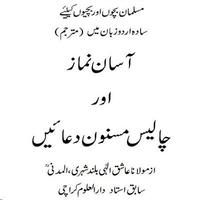 مسلمان بچوں اور بچیوں کیلئے
سادہ اردو زبان میں (مترجم)
آسان نماز
اور
چالیس مسنون دعائیں
از مولانا عاشق الٰہی بلند شہری، المدنیؒ
سابق استاد دارالعلوم کراچی